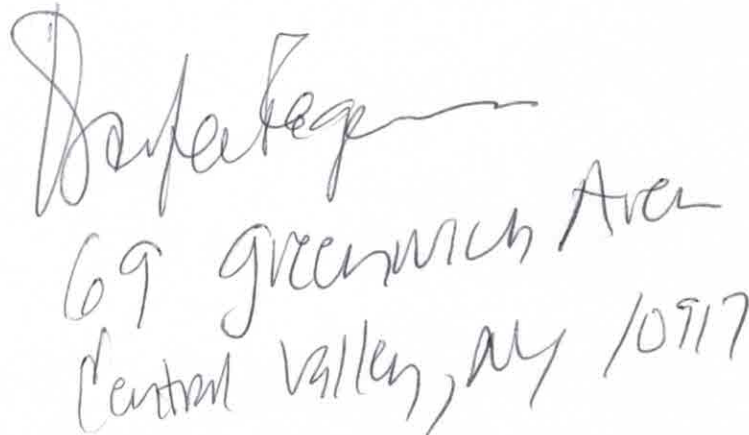 69 greenwich Aven
Central Valley, NY 10917